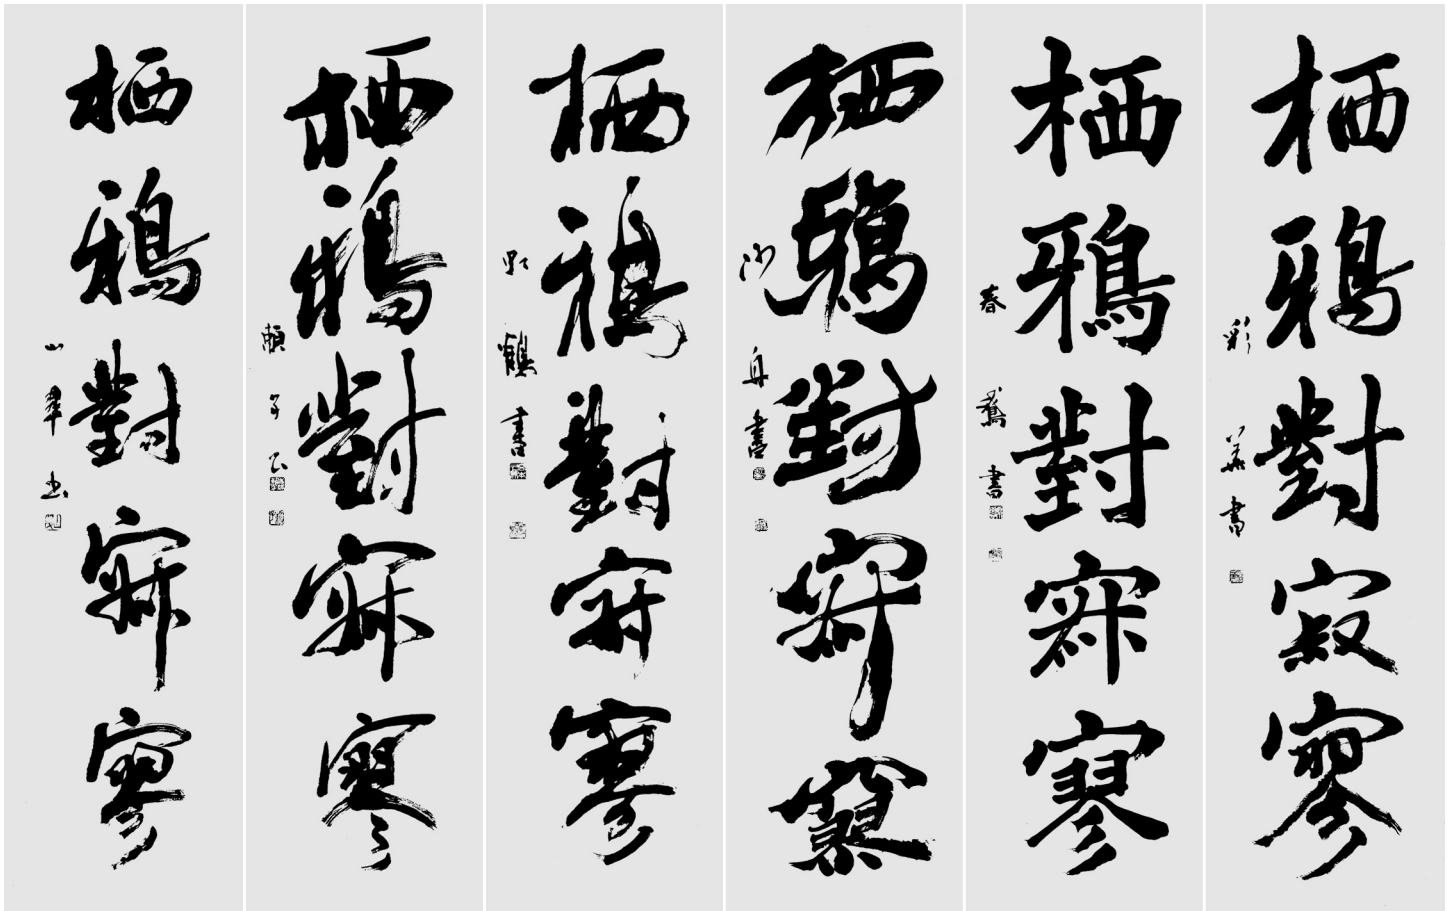 栖鴉對寂寥
彩華書
栖鴉對寂寥
春鵞書
栖鴉對寂寥
舟書
栖鴉對寂寥
鶴書
栖鴉對寂寥
栖鴉對寂寥
山翠书